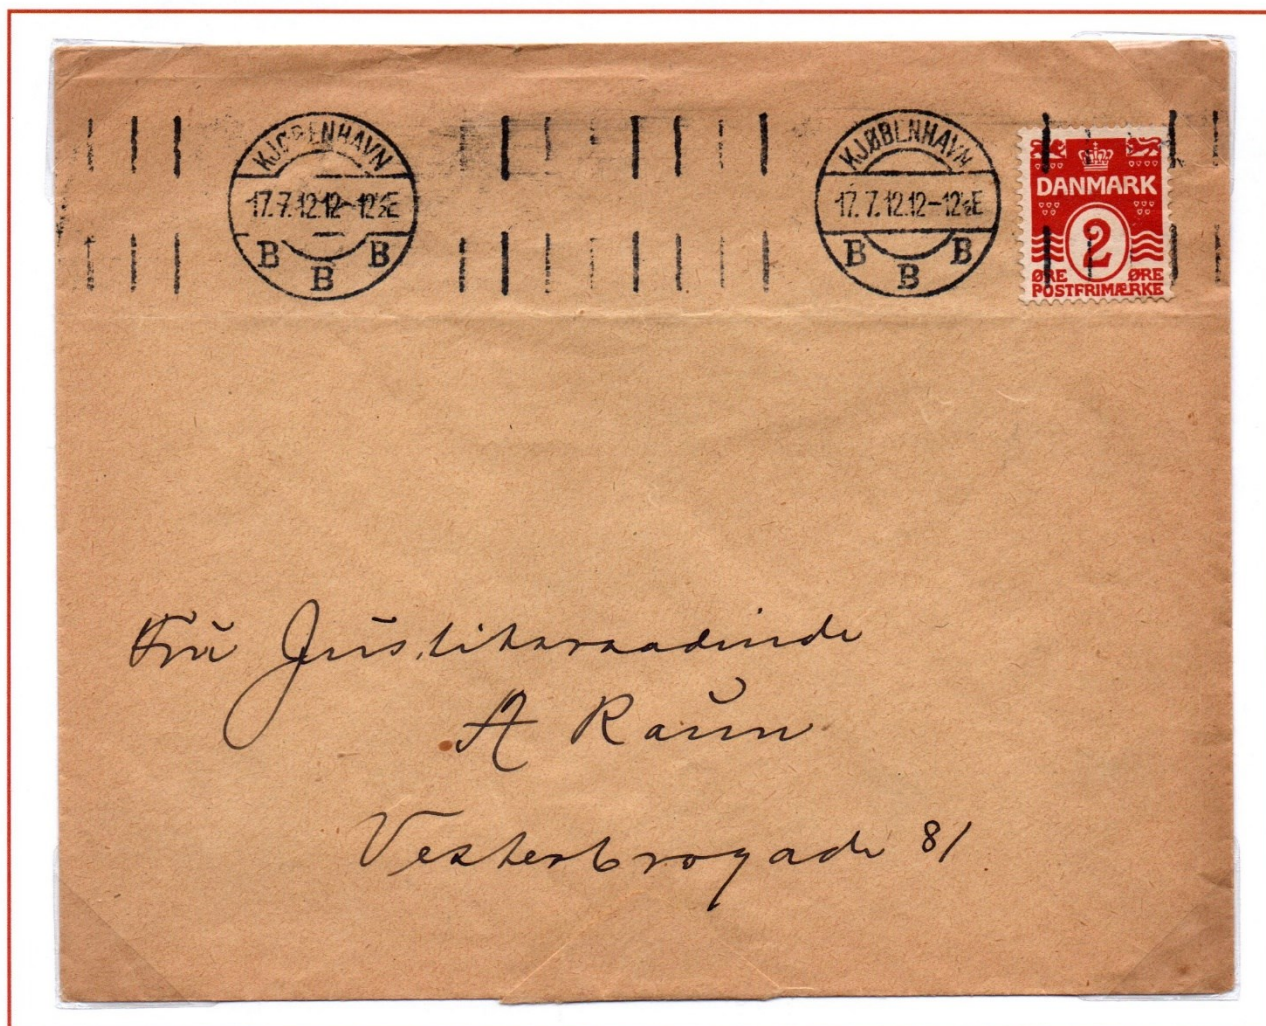 KJØBENHAVN
17.7.12.12-12½E
B B B
KJØBENHAVN
17.7.12.12-12½E
B B B
DANMARK
2
ØRE ØRE
POSTFRIMÆRKE
Fru Justitsraadinde
A Raun
Vesterbrogade 81